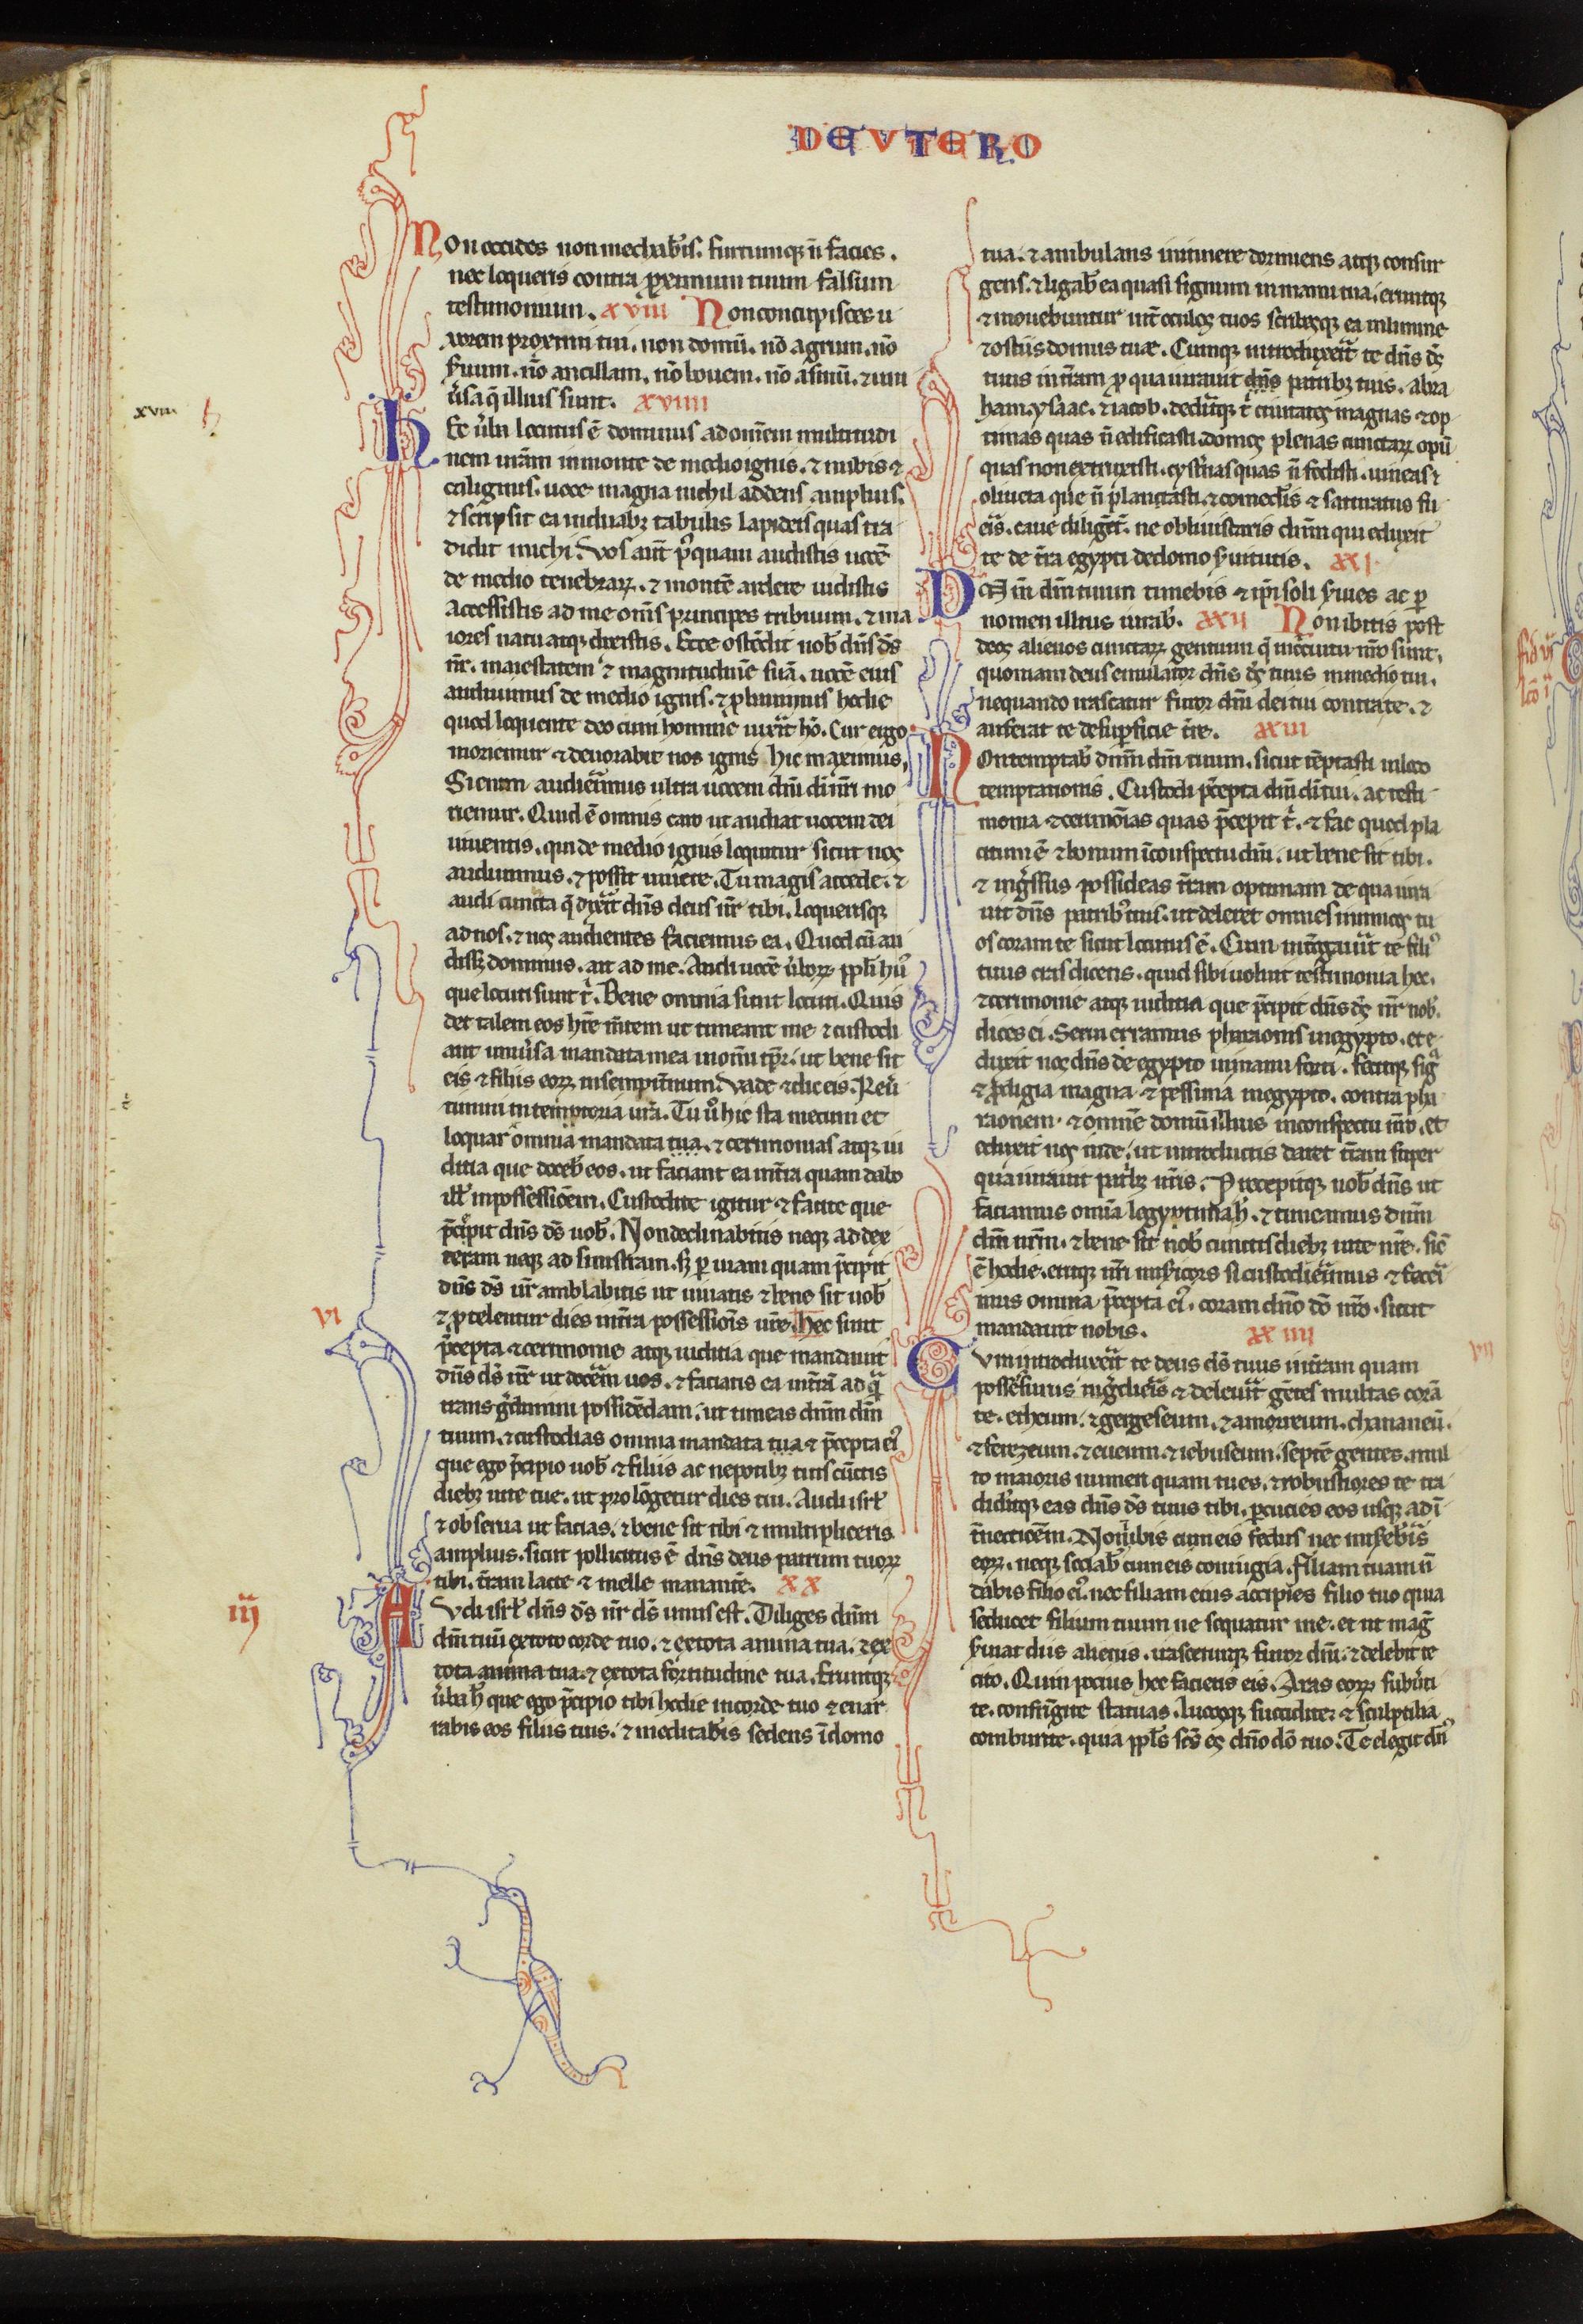 DEVTERO
Non occides non mechab̄is. furtumqȝ n̄ facies.
nec loqueris contra proximum tuum falsum
testimonium. xviii Non concupisces u
xorem proximi tui. non domū. nō agrum. nō
s̓uum. nō ancillam. nō bouem. nō asinū. ⁊ uni
u̓sa q̄ illius sunt. xviiii
xviii.
Hec u̓ba locutus ē dominus ad om̄em multitudi
nem ur̄am in monte de medio ignis. ⁊ nubis ⁊
caliginis. uoce magna nichil addens amplius.
⁊ scripsit ea in duabȝ tabulis lapideis quas tra
didit michi. Vos aūt p̓quam audistis uocē
de medio tenebraꝝ. ⁊ montē ardere uidistis
accessistis ad me om̄s principes tribuum. ⁊ ma
iores natu atqȝ dixistis. Ecce ostēdit uob̄ dn̄s ds̄
nr̄. maiestatem ⁊ magnitudinē suā. uocē eius
audiuimus de medio ignis. ⁊ ꝓbauimus hodie
quod loquente deo cum homine uix̄it hō. Cur ergo
moriemur ⁊ deuorabit nos ignis hic maximus.
Si enim audierimus ultra uocem dn̄i di nr̄i mo
riemur. Quid ē omnis caro ut audiat uocem dei
uiuentis. qui de medio ignis loquitur sicut nos
audiuimus. ⁊ possit uiuere. Tu magis accede. ⁊
audi cuncta q̄ dix̄it dn̄s deus nr̄ tibi. loquerisqȝ
ad nos. ⁊ nos audientes faciemus ea. Quod cū au
dissȝ dominus. ait ad me. Audi uocē u̓boꝝ ppl̄i hui̓
que locuti sunt t̓. Bene omnia sunt locuti. Quis
det talem eos hr̄e m̄tem ut timeant me ⁊ custodi
ant uniu̓sa mandata mea in om̄i tp̄r. ut bene sit
eis ⁊ filiis eoꝝ in sempit̓num. Vade ⁊ dic eis. Reu̓
timini in temptoria ur̄a. Tu u̓o hic sta mecum et
loquar omnia mandata tua. ⁊ cerimonias atqȝ iu
dicia que doceb̄ eos. ut faciant ea in tr̄a quam dabo
ill̄ in possessiōem. Custodite igitur ⁊ facite que
p̄cepit dn̄s ds̄ uob̄. Non declinabitis neqȝ ad dex
teram neqȝ ad sinistram. sȝ ꝑ uiam quam p̄cepit
dn̄s ds̄ ur̄ amblabitis ut uiuatis ⁊ bene sit uob̄
vi
⁊ ꝓtelentur dies in tr̄a possessiōis ur̄e. Hec sunt
p̄cepta ⁊ cerimonie atqȝ iudicia que mandauit
dn̄s ds̄ nr̄ ut docerem uos. ⁊ faciatis ea in tr̄a ad q̄
trans g̓dimini possidēdam. ut timeas dn̄m dm̄
tuum. ⁊ custodias omnia mandata tua ⁊ p̄cepta ei̓
que ego p̄cipio uob̄ ⁊ filiis ac nepotibȝ tuis cūctis
diebȝ uite tue. ut prolōgetur dies tui. Audi isrl̄
⁊ obserua ut facias. ⁊ bene sit tibi ⁊ multipliceris
amplius. sicut pollicitus ē dn̄s deus patrum tuoꝝ
tibi. tr̄am lacte ⁊ melle manantē. xx
iij
Audi isrl̄ dn̄s ds̄ nr̄ ds̄ unus est. Diliges dn̄m
dm̄ tuū ex toto corde tuo. ⁊ ex tota anima tua. ⁊ ex
tota anima tua. ⁊ ex tota fortitudine tua. Eruntqȝ
u̓ba h̄ que ego p̄cipio tibi hodie in corde tuo ⁊ enar
rabis eos filiis tuis. ⁊ meditab̄is sedens ī domo
tua. ⁊ ambulans in itinere dormiens atqȝ consur
gens. ⁊ ligab̄ ea quasi signum in manu tua. eruntqȝ
⁊ mouebuntur int̄ oculos tuos scribesqȝ ea in limine
⁊ ostiis domus tuæ. Cumqȝ introduxerit te dn̄s ds̄
tuus in tr̄am ꝓ qua iurauit dn̄s patribȝ tuis. abra
ham. ysaac. ⁊ iacob. dederitqȝ t̓ ciuitates magnas ⁊ op
timas quas n̄ edificasti. domos plenas cunctaꝝ opū
quas non extruxisti. cyst̓nas quas n̄ fodisti. uineas ⁊
oliueta que n̄ plantasti. ⁊ comedr̄is ⁊ saturatus fu
eris. caue diligēt̄. ne obliuiscaris dn̄m qui eduxit
te de tr̄a egypti de domo s̓uitutis. xxi
Dn̄m dm̄ tuum timebis ⁊ ip̄i soli s̓uies ac ꝑ
nomen illius iurab̄. xxii Non ibitis post
deos alienos cunctaꝝ gentium q̄ in c̓cuitu ur̄o sunt.
quoniam deus emulator dn̄s ds̄ tuus in medio tui.
nequando irascatur furor dn̄i dei tui contra te. ⁊
auferat te de suꝑficie tr̄e. xxiii
Non temptab̄ dn̄m dm̄ tuum. sicut tēptasti in loco
temptationis. Custodi p̄cepta dn̄i di tui. ac testi
monia ⁊ cerimōias quas p̄cepit t̓. ⁊ fac quod pla
citum ē ⁊ bonum ī conspectu dn̄i. ut bene sit tibi.
⁊ ing̓ssus possideas tr̄am optimam de qua iura
uit dn̄s patrib̓ tuis. ut deleret omnes inimicos tu
os coram te sicut locutus ē. Cum int̓rogauerit te fili̓
tuus cras dicens. quid sibi uolunt testimonia hec.
⁊ cerimonie atqȝ iudicia que p̄cepit dn̄s ds̄ nr̄ nob̄.
dices ei. Serui eramus pharaonis in egypto. et e
duxit nos dn̄s de egypto in manu forti. fecitqȝ sig̓
⁊ ꝓdigia magna ⁊ pessima in egypto. contra pha
raonem. ⁊ omnē domū illius in conspectu nr̄o. et
eduxit nos inde. ut introductis daret tr̄am super
qua iurauit patribȝ nr̄is. P̄cepitqȝ nob̄ dn̄s ut
faciamus omīa legyptima h̄. ⁊ timeamus dn̄m
dm̄ nr̄m. ⁊ bene sit nob̄ cunctis diebȝ uite nr̄e. sic̄
ē hodie. eritqȝ nr̄i mis̓icors si custodierimus ⁊ feceri
mus omnia p̄cepta ei̓. coram dn̄o dō nr̄o. sicut
mandauit nobis. xxiiii
vii
Cum introduxerit te deus ds̄ tuus in tr̄am quam
possessurus ing̓dieris ⁊ deleuerit gētes multas corā
te. etheum. ⁊ gergeseum. ⁊ amorreum. chananeū.
⁊ ferezeum. ⁊ eueum. ⁊ iebuseum. septē gentes. mul
to maioris numeri quam tu es. ⁊ robustiores te tra
dideritqȝ eas dn̄s ds̄ tuus tibi. ꝑcucies eos usqȝ ad ī
t̓necciōem. Non inibis cum eis fedus nec mis̓eb̓is
eoꝝ. neqȝ sociab̄ cum eis coniugia. filiam tuam n̄
dabis filio ei̓. nec filiam eius accipies filio tuo quia
seducet filium tuum ne sequatur me. et ut mag̓
s̓uiat diis alienis. irasceturqȝ furor dn̄i. ⁊ delebit te
cito. Quin pocius hec facietis eis. Aras eoꝝ subu̓ti
te. confrīgite statuas. lucosqȝ succidite ⁊ sculptilia
comburite. quia ppl̄s scs̄ es dn̄o dō tuo. Te elegit dn̄s